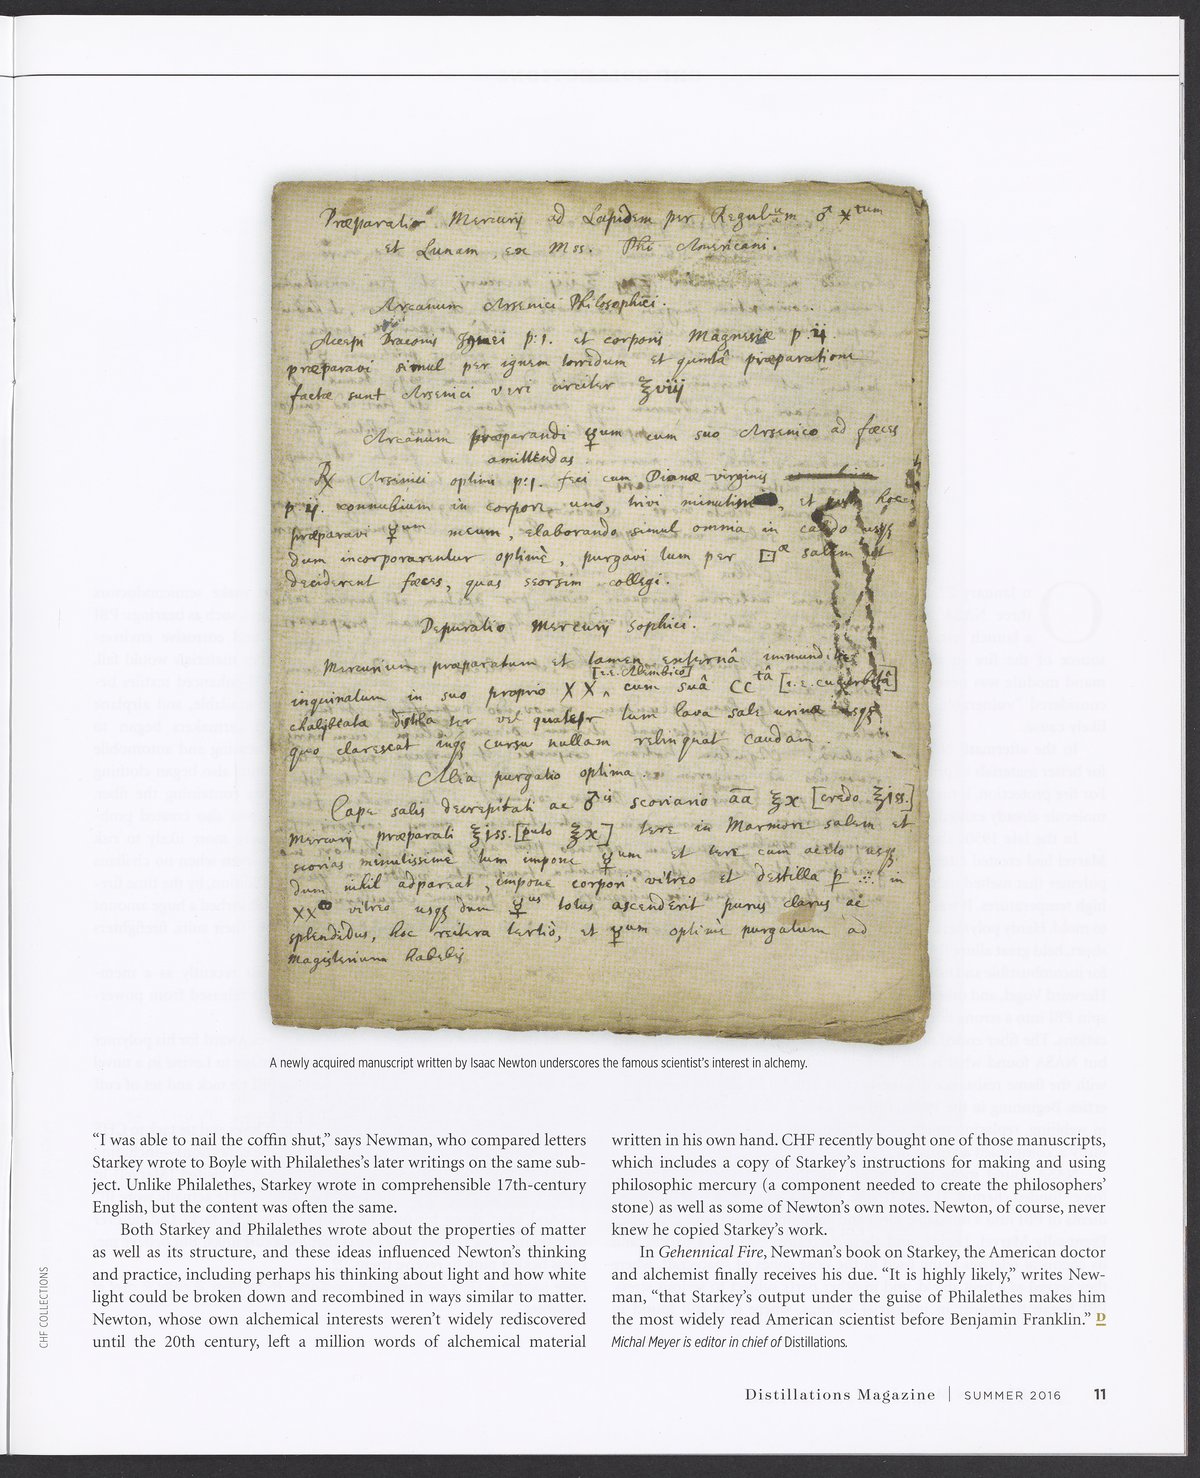 Præparatio Mercurij ad Lapidem per Regulum ♂ ⚹tum
et Lunam, ex Mss. Phi Americani.
Arcanum Arsenici Philosophici.
Accepi Draconis Ignei p:1. et corporis Magnesiæ p.ij.
præparavi simul per ignem torridum et quintâ præparatione
factæ sunt Arsenici veri circiter ℥viij
Arcanum præparandi ☿um cum suo Arsenico ad fæces
amittendas
℞ Arsenici optimi p:1. feci cum Dianæ virginis
p ij. connubium in corpore uno, trivi minutim, et hoc
præparavi ☿um meum, elaborando simul omnia in usqꝫ
dum incorporarentur optimè, purgavi tum per ⊡æ salem ut
deciderent fæces, quas seorsim collegi.
Depuratio Mercurij Sophici.
Mercurium præparatum et tamen externâ immunditie
[i.e. Alembico]
inquinatum in suo proprio XX ‸ cum suâ CCtâ [i.e. cucurbitâ]
chalybeata distilla ter vel quater tum lava sale urinæ usqꝫ
quo clarescat inqꝫ cursu nullam relinquat caudam.
Alia purgatio optima.
Cape salis decrepitati ac ♂is scoriario āā ℥x [credo ℥jss.]
Mercurij præparati ℥jss. [puto ℥x] tere in Marmore salem et
scorias minutissimè tum impone ☿um et tere cum aceto usqꝫ
dum nihil adpareat, impone corpori vitreo et destilla p ∴ in
XXco vitreo usqꝫ dum ☿us totus ascenderit purus clarus ac
splendidus, hoc reitera tertiò, et ☿um optimè purgatum ad
Magisterium habebis
A newly acquired manuscript written by Isaac Newton underscores the famous scientist’s interest in alchemy.
“I was able to nail the coffin shut,” says Newman, who compared letters
Starkey wrote to Boyle with Philalethes’s later writings on the same sub-
ject. Unlike Philalethes, Starkey wrote in comprehensible 17th-century
English, but the content was often the same.
Both Starkey and Philalethes wrote about the properties of matter
as well as its structure, and these ideas influenced Newton’s thinking
and practice, including perhaps his thinking about light and how white
light could be broken down and recombined in ways similar to matter.
Newton, whose own alchemical interests weren’t widely rediscovered
until the 20th century, left a million words of alchemical material
written in his own hand. CHF recently bought one of those manuscripts,
which includes a copy of Starkey’s instructions for making and using
philosophic mercury (a component needed to create the philosophers’
stone) as well as some of Newton’s own notes. Newton, of course, never
knew he copied Starkey’s work.
In Gehennical Fire, Newman’s book on Starkey, the American doctor
and alchemist finally receives his due. “It is highly likely,” writes New-
man, “that Starkey’s output under the guise of Philalethes makes him
the most widely read American scientist before Benjamin Franklin.” D
Michal Meyer is editor in chief of Distillations.
CHF COLLECTIONS
Distillations Magazine | SUMMER 2016 11